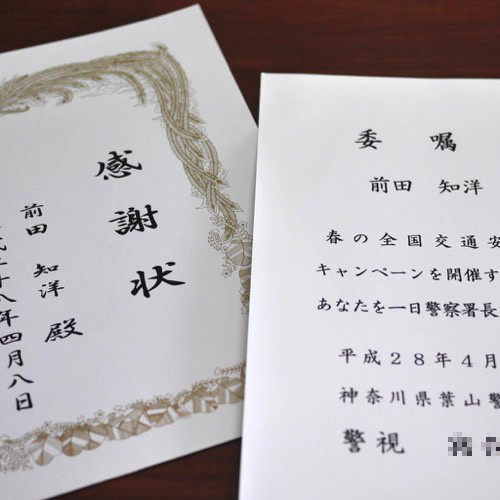 感謝状
前田 知洋 殿
平成二十八年四月八日
委嘱
前田 知洋
春の全国交通安
キャンペーンを開催す
あなたを一日警察署長
平成28年4月
神奈川県葉山警
警視